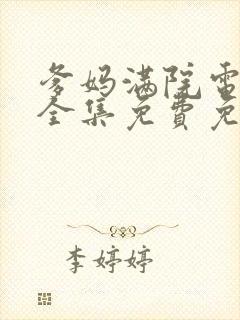 爹妈满院电
全集免费免
李婷婷